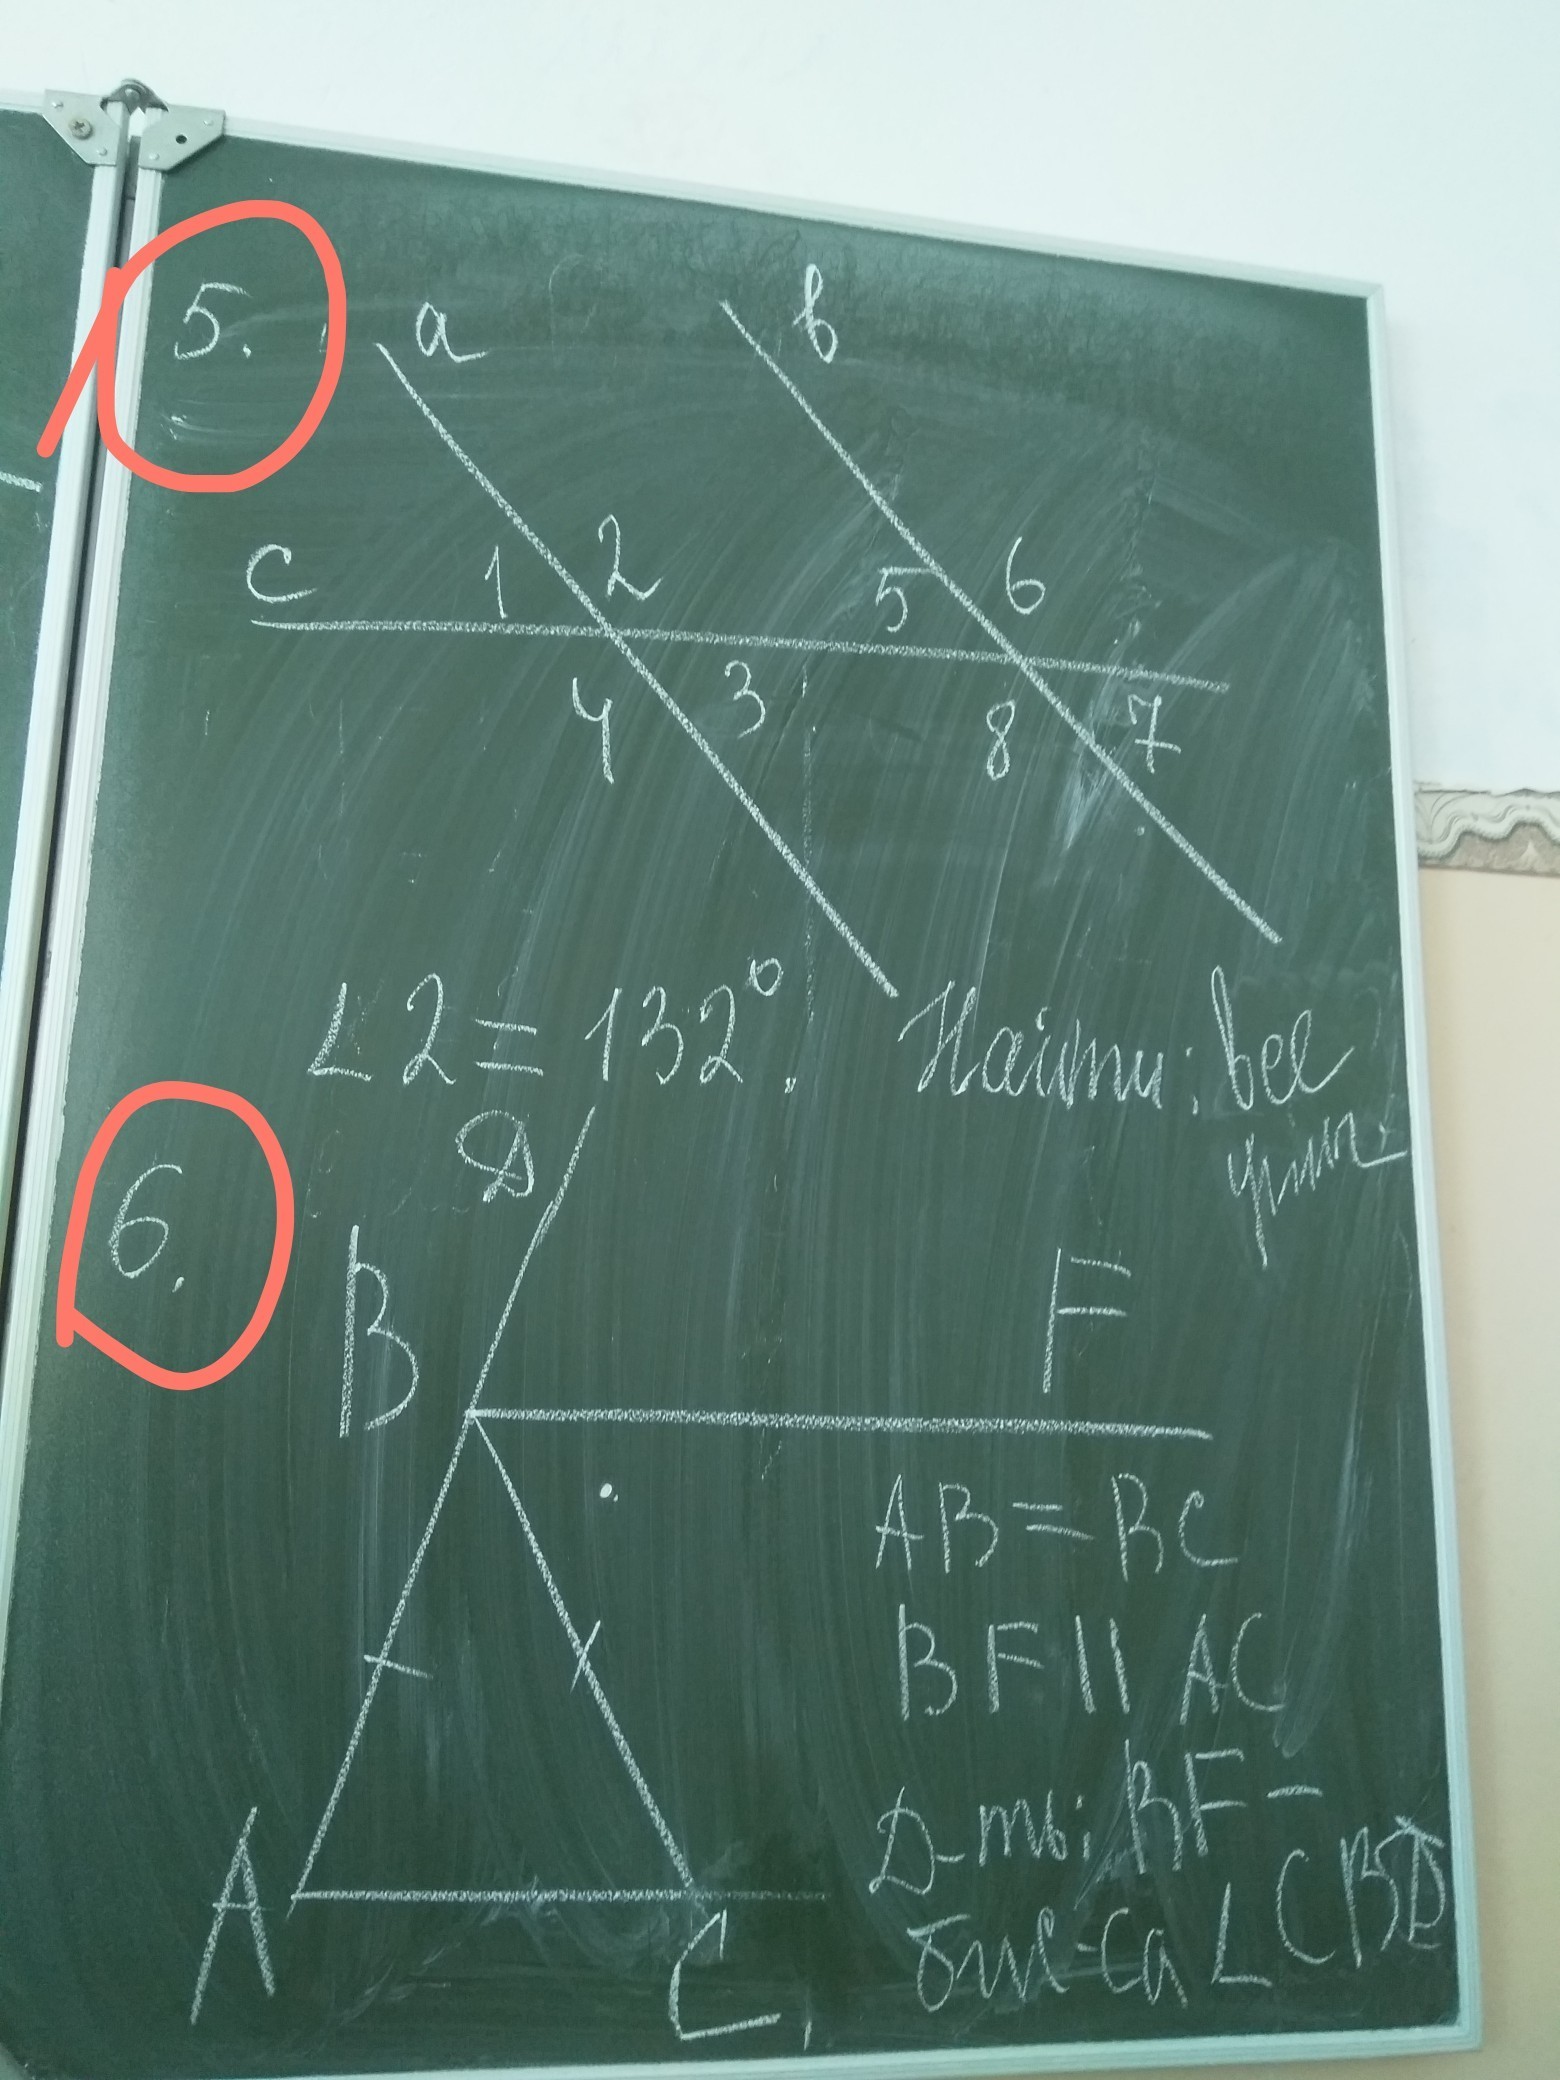 5.
a
b
c
1 2 5 6
4 3 8 7
∠2 = 132°. Найти: все
углы
6.
D
B
F
AB = BC
BF || AC
Д-ть: BF -
бис-са ∠CBD
A
C